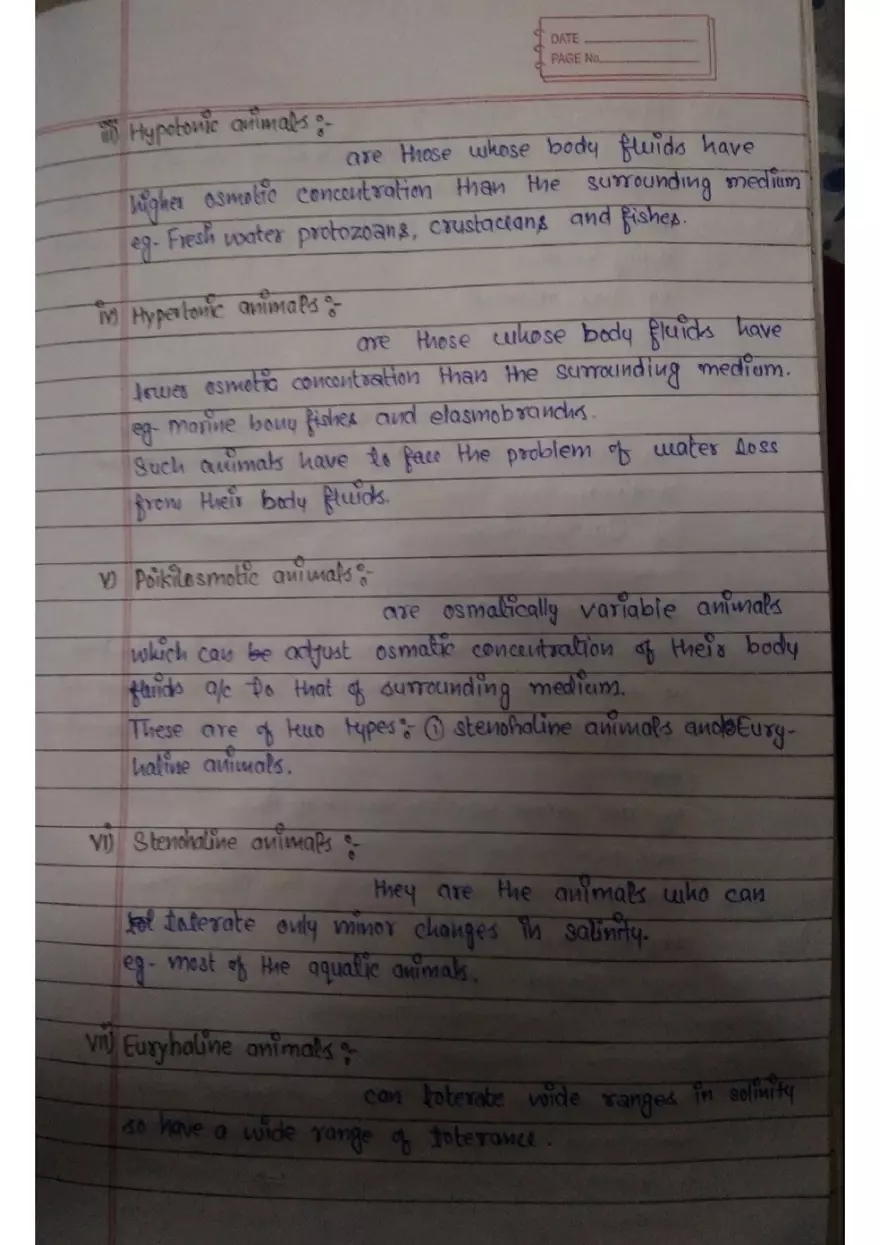 DATE
PAGE No.
iii) Hypotonic animals :-
are those whose body fluids have
higher osmotic concentration than the surrounding medium
eg- Fresh water protozoans, crustaceans and fishes.
iv) Hypertonic animals :-
are those whose body fluids have
lower osmotic concentration than the surrounding medium.
eg- marine bony fishes and elasmobranchs.
Such animals have to face the problem of water loss
from their body fluids.
v) Poikilosmotic animals :-
are osmatically variable animals
which can be adjust osmatic concentration of their body
fluids a/c to that of surrounding medium.
These are of two types :- ① stenohaline animals and ② Eury-
haline animals.
vi) Stenohaline animals :-
they are the animals who can
tolerate only minor changes in salinity.
eg- most of the aquatic animals.
vii) Euryhaline animals :-
can tolerate wide ranges in salinity
so have a wide range of tolerance.